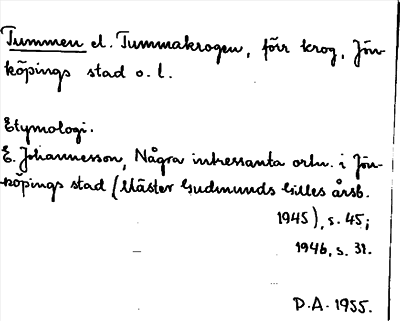 Tummen el. Tummakrogen, förr krog, Jön-
köpings stad o. l.
Etymologi.
E. Johannesson, Några intressanta ortn. i Jön-
köpings stad (Mäster Gudmunds Gilles årsb.
1945), s. 45;
1946, s. 31.
P.A. 1955.